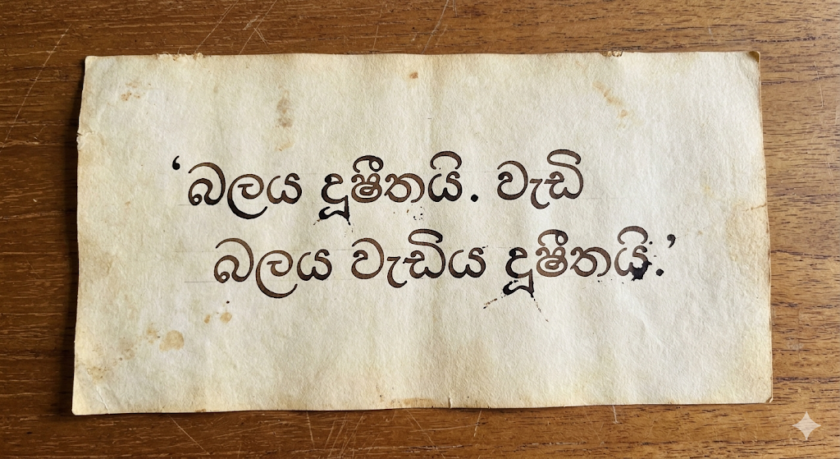 ‘බලය දූෂීතයි. වැඩි
බලය වැඩිය දූෂීතයි.’